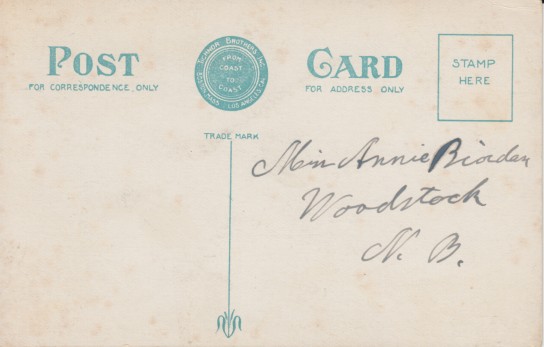 POST CARD
FOR CORRESPONDENCE ONLY
FROM
COAST
TO
COAST
BROTHERS, INC.
BOSTON, MASS. LOS ANGELES, CAL.
FOR ADDRESS ONLY
STAMP
HERE
TRADE MARK
Miss Annie Riordan
Woodstock
N. B.